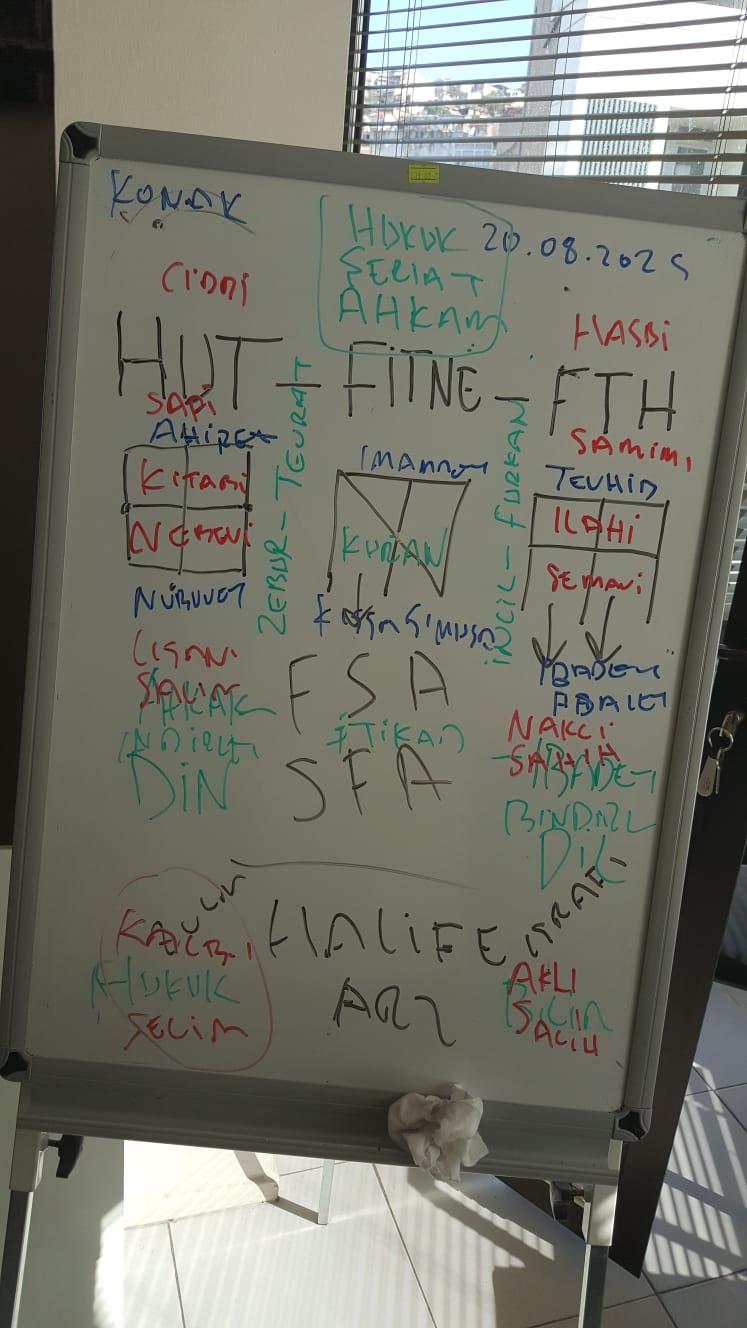 KONAK
HUKUK 20.08.2025
ŞERİAT
AHKAM
CİDDİ
HASBİ
HUT - FİTNE - FTH
SAFİ
SAMİMİ
AHİRET
TEVHİD
ZEBUR - TEVRAT
İNCİL - FURKAN
KİTABİ
NEBEVİ
KURAN
İLAHİ
SEMAVİ
NÜBUVVET
İBADET
ADALET
LİSANİ
FSA
AHLAK
İTİKAD
NAKLİ
SAHİH
İBADET
DİN
SFA
DİL
KALBİ
HALİFE
HUKUK
ARZ
AKLİ
BİLİM
SELİM
SALİH